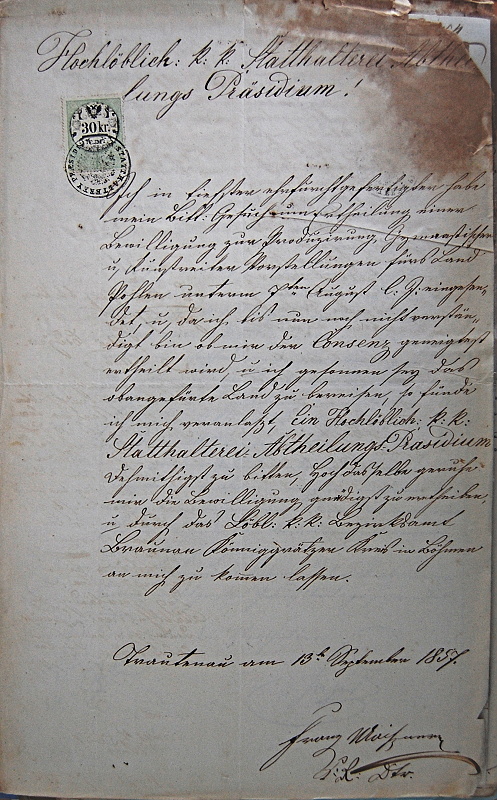 Hochlöblich: k: k: Statthalterei: Abthei
lungs Präsidium!
30 kr.
Ich in tiefster ehrfurchtgefertigter habe
mein Bitt: Gesuch um Ertheilung einer
Bewilligung zur Produzirung, Gymnastischen
u, Kunstreiter Vorstellungen fürs Land
Pohlen unterm 7ten August l. J. eingesen¬
det, u, da ich bis nun noch nicht verstän¬
digt bin ob mir der Consenz geneigtest
ertheilt wird, u ich gesonnen sey das
obangeführte Land zu bereisen, so finde
ich mich veranlaßt, Ein Hochlöblich: k: k:
Statthalterei: Abtheilungs Präsidium
demüthigst zu bitten, Hochdasselbe geruhe
mir die Bewilligung gnädigst zu ertheilen,
u, durch das Löbl: k: k: Bezirksamt
Braunau Königgrätzer Kreis in Böhmen
an mich zu kommen lassen.
Trautenau am 13t September 1857.
Franz